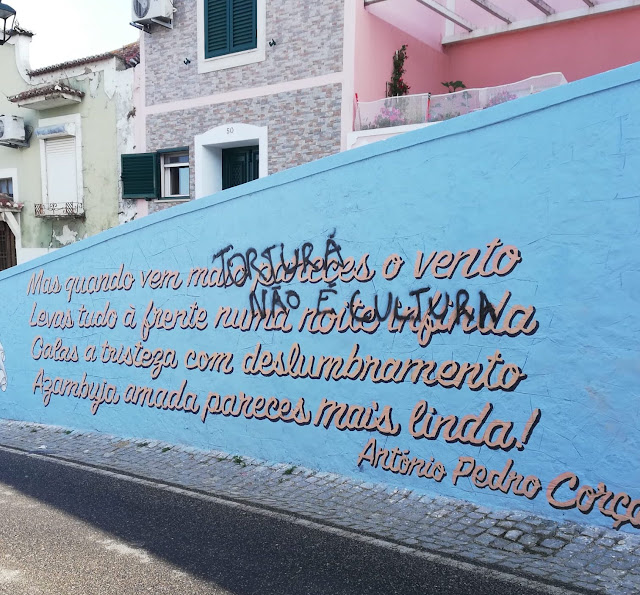 50
TORTURA
NÃO É CULTURA
Mas quando vem maio pareces o vento
Levas tudo à frente numa noite infinda
Calas a tristeza com deslumbramento
Azambuja amada pareces mais linda!
António Pedro Corça